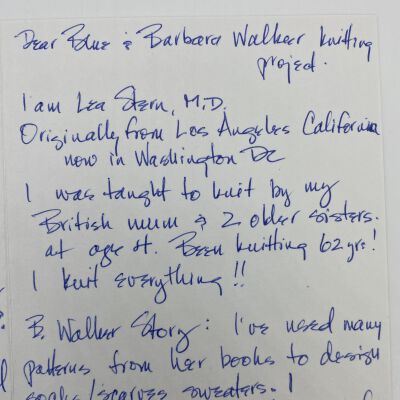 Dear Blue & Barbara Walker knitting
project.
I am Lea Stern, M.D.
Originally from Los Angeles California
now in Washington DC
I was taught to knit by my
British mum & 2 older sisters.
at age . Been knitting 62 yrs!
I knit everything!!
B. Walker Story: I've used many
patterns from her books to design
socks/scarves sweaters. I